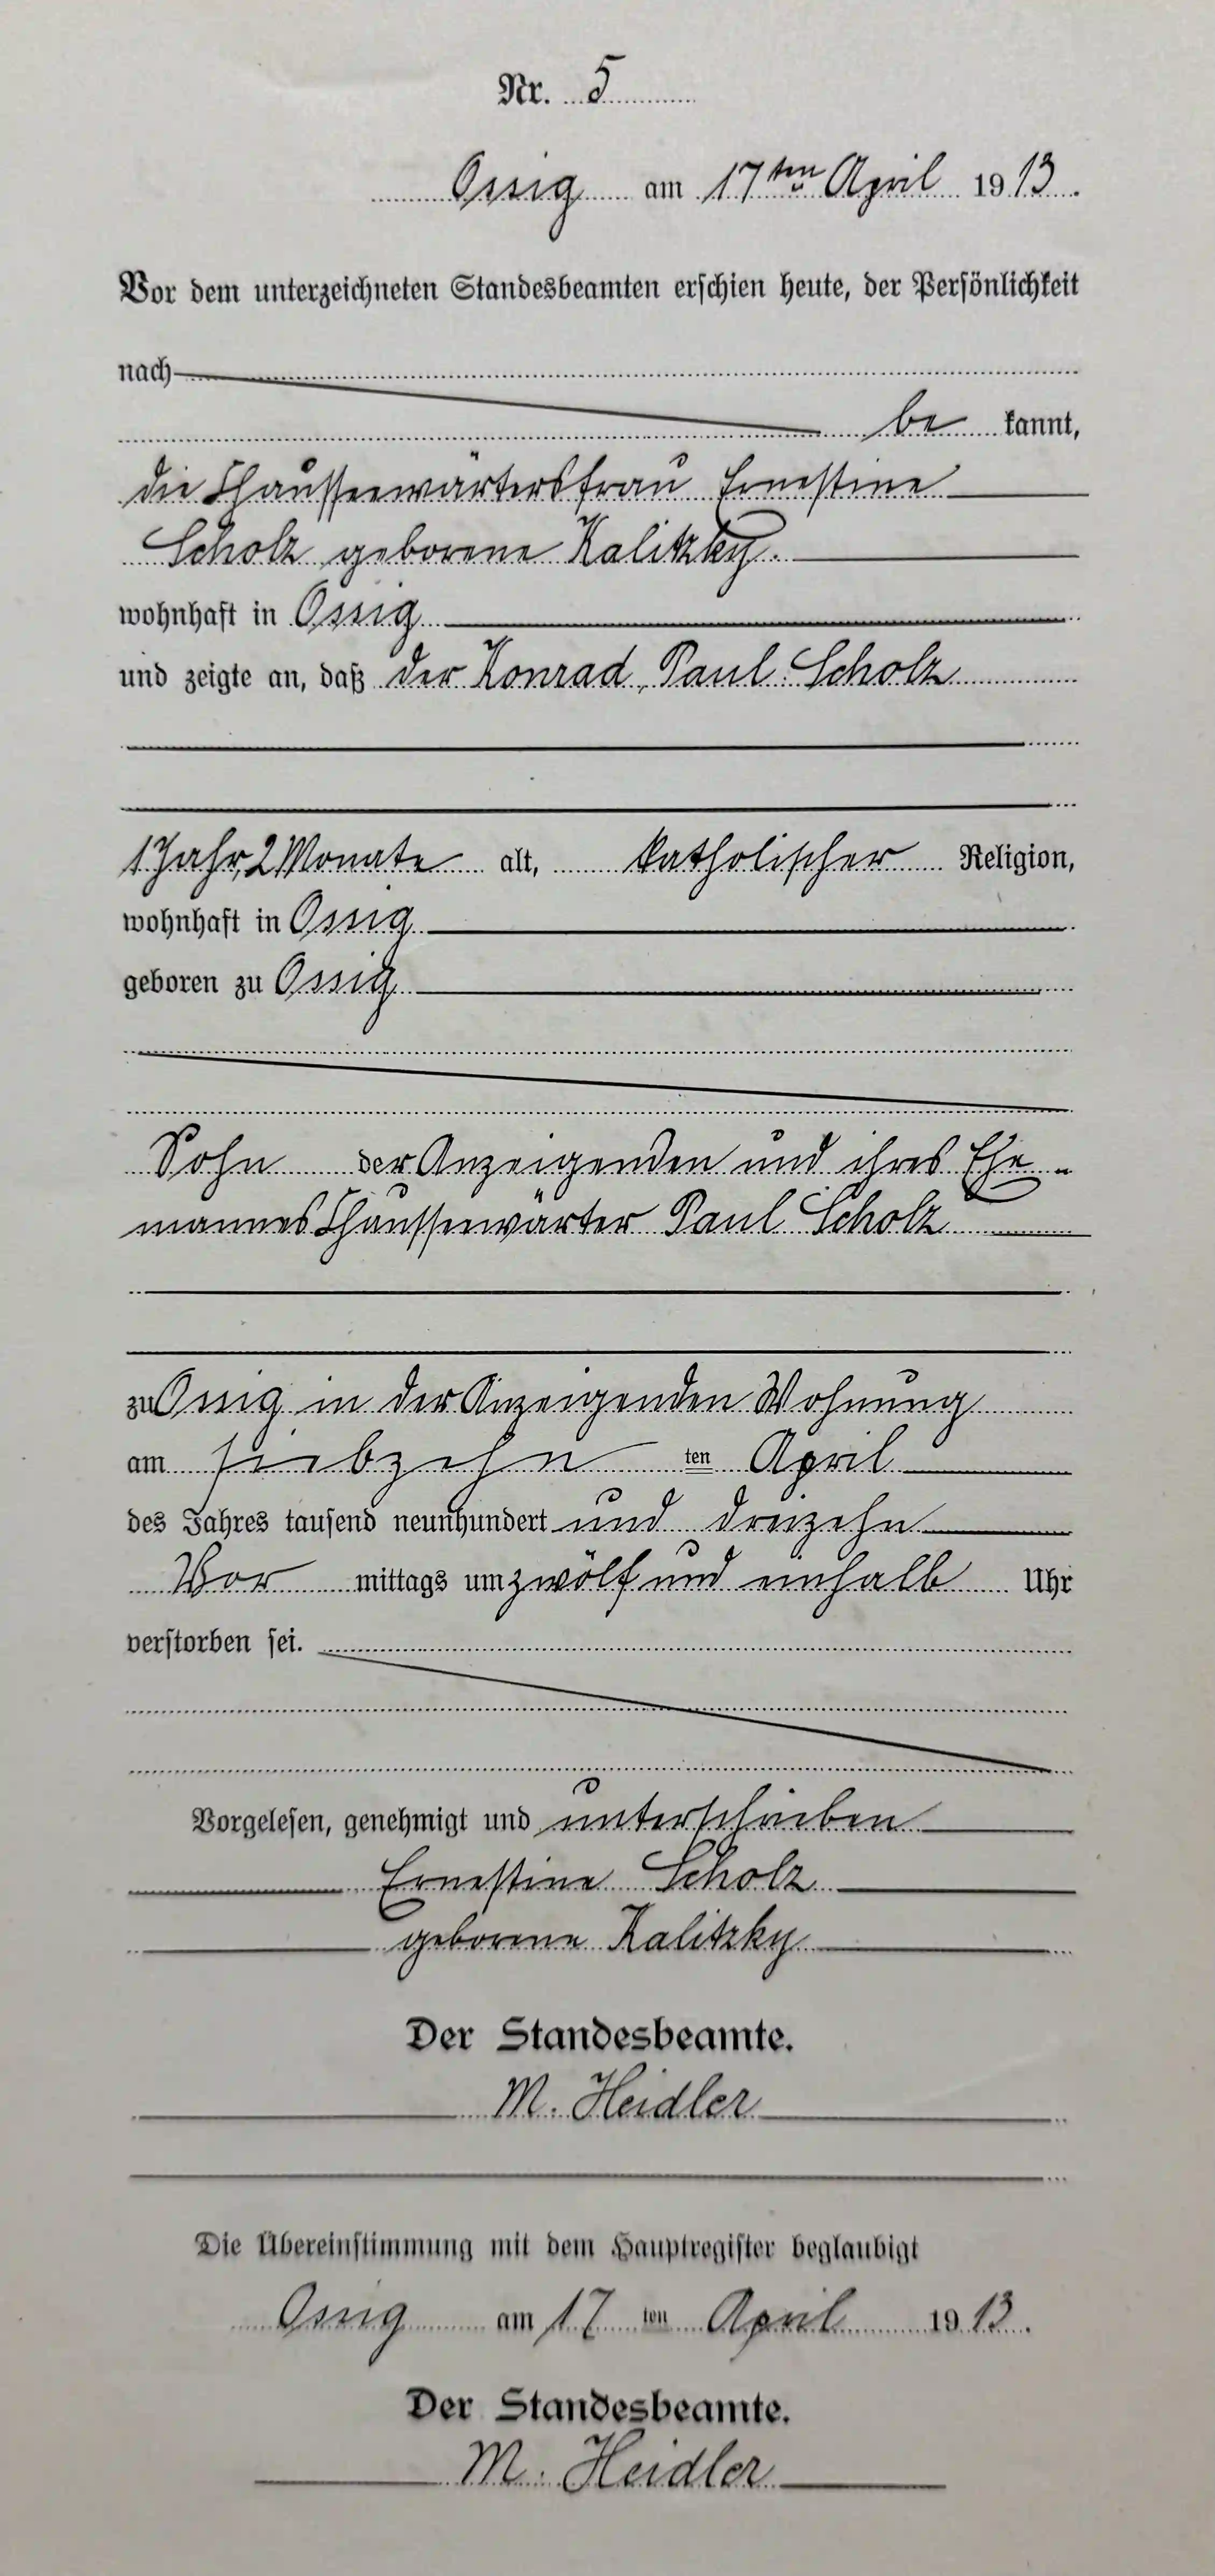 Nr. 5
Ossig am 17ten April 1913.
Vor dem unterzeichneten Standesbeamten erschien heute, der Persönlichkeit
nach
be kannt,
die Chausseewärtersfrau Ernestine
Scholz geborene Kalitzky.
wohnhaft in Ossig
und zeigte an, daß der Konrad, Paul Scholz
1 Jahr, 2 Monate alt, katholischer Religion,
wohnhaft in Ossig
geboren zu Ossig
Sohn der Anzeigenden und ihres Ehe-
mannes Chausseewärter Paul Scholz
zu Ossig in der Anzeigenden Wohnung
am siebzehn ten April
des Jahres tausend neunhundert und dreizehn
Vor mittags um zwölf und einhalb Uhr
verstorben sei.
Vorgelesen, genehmigt und unterschrieben
Ernestine Scholz
geborene Kalitzky
Der Standesbeamte.
M. Heidler
Die Übereinstimmung mit dem Hauptregister beglaubigt
Ossig am 17 ten April 1913.
Der Standesbeamte.
M. Heidler